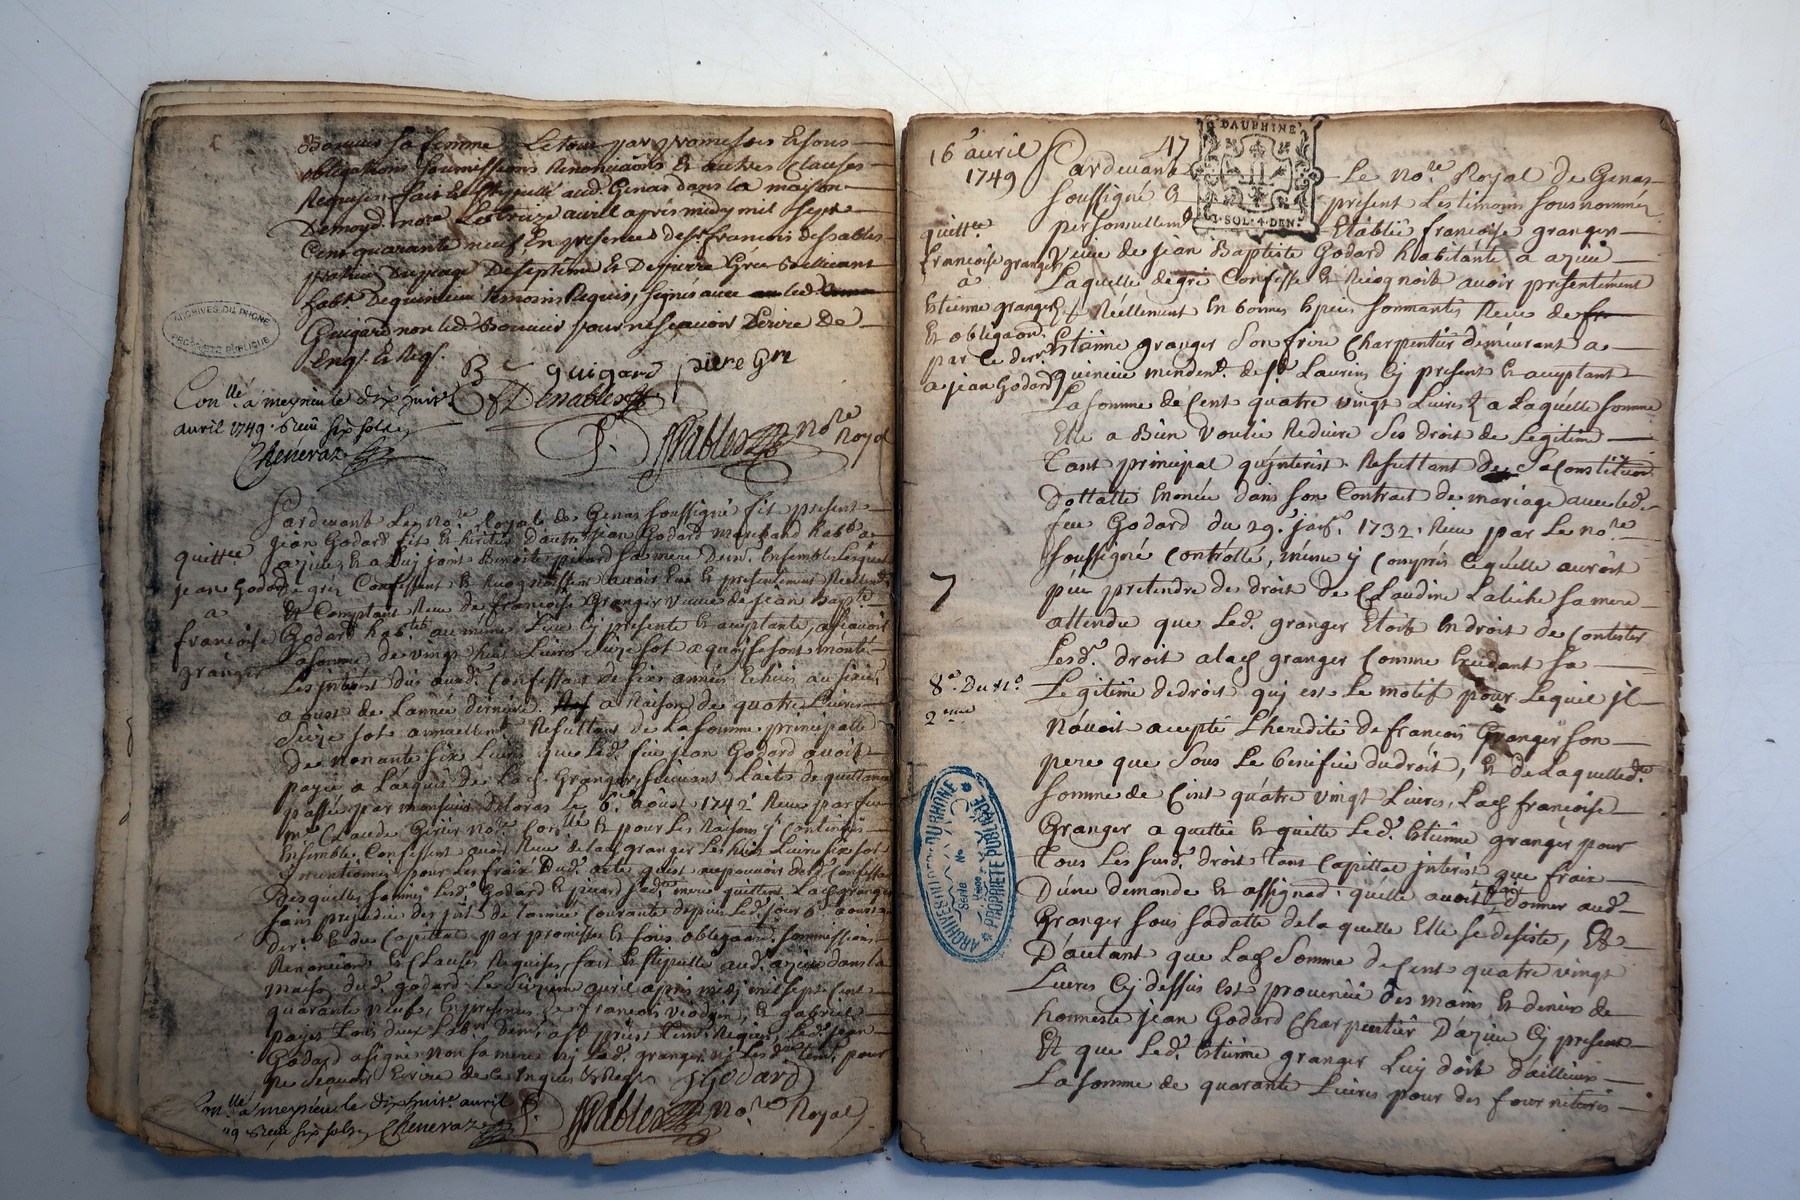 sa femme Le tout par promesses Et sous
obligations soumissions Renonciaons Et autres Clauses
Requises fait Et stipullé aud. Genas dans la maison
De moyd. no.re Le treize avril apres midy mil sept
Cent quarante neuf En presence de s.r francois dessables
De septême Et De pierre Gren
hab.t De quinieu temoins Requis, signés avec led.
Guigard non lad. Bouvier pour ne sçavoir Ecrire De
Enq.s Et Req.s
B C guigard piere grn
Con.llé a meyzieu le dix huit.e
avril 1749. Reçu six sols
Cheneraz
no.re Royal
quitt.ce
jean Godard
a
francoise
granger
Pardevant Le no.re Royal de Genas soussigné fût present
jean Godard fils Et heritier d'autre jean Godard marchand hab.t a
azieu Et a Luy joint Benoite picard sa mere
de gré Confessent Et Recognoissent avoir Eüe Et presentement Reellem.t
Et Comptant Receu de francoise Granger veuve de jean Bapt.e
Godard hab.te au même Lieu Cy presente Et acceptante, a sçavoir
La somme de vingt huit Livres seize sols a quoy se sont monté
Les interest dus aud.s Confessant de six années Echües au sixie.
aoust de L'année derniere. a Raison de quatre Livres
seize sols annuellem.t Resultant de La somme principalle
de nonante six Livres que Led. feu jean Godard avoit
payée a L'acquit de Lad. Granger, suivant L'acte de quittance
passée par monsieur deloras Le 6.e aôust 1742 Receu par feu
m.re Claude Girier no.re Et pour Les Raisons y Contenües
Ensemble Confessent avoir Receu de lad. granger Les huit Livres six sols
mentionnés pour Les fraix Dud. acte
Desquelles sommes Lesd. Godard Et picard sad. mere quittent Lad. granger
sans prejudice des int. de L'année Courante depuis Led. jour 6.e aoust
der.r Et du Capittal par promesses Et sous obligaon. soummissions
Renonciaons Et Clauses Requises, fait Et stipullé aud. azieu dans la
maison dud. godard Le sixieme avril apres midy mil sept Cent
quarante neuf, En presence de francois Et gabriel
payet tous deux Lab.rs
Godard a signé non sa mere ny Lad. granger ny Lesd. tem. pour
ne sçavoir Ecrire de Ce Enquis Et Req.s JGodard
Con.llé a meyzieu le dix huit.e avril
49 Reçu six sols Cheneraz
no.re Royal
16 avril
1749
47
DAUPHINE
1·SOL·4·DEN.
quitt.ce
francoise granger
a
Etienne granger
Et obligaon.
par Ce der.r
a jean Godard
Pardevant Le no.re Royal de Genas
soussigné Et present Les temoins sous nommés
personnellem.t Etablie francoise granger
Veuve de jean Baptiste Godard habitante a azieu
Laquelle de gré Confesse Et Recognoit avoir presentement
Réellement En bonnes Especes sonnantes Receu de
Etienne granger son frere Charpentier demeurant a
quinieu mendem.t de s.t Laurens Cy present Et acceptant
La somme de Cent quatre vingt Livres a Laquelle somme
Elle a Bien voulu Reduire Ses droit de Legitime
tant principal qu'interest Resultant de Sa Constitution
Dottalle Enoncée dans son Contract de mariage avec led.
feu Godard du 29.e janv.r 1732, Receu par Le no.re
soussigné Contrôllé, même y Compris Ce qu'elle auroit
peu pretendre de droit de Claudine Laliche sa mere
attendu que Led. granger Etoit En droit de Contester
Lesd. droit a lad. granger Comme Excedant Sa
Legitime de droit qui est Le motif pour Lequel jl
N'avoit accepté L'heredité de francois Granger son
pere que sous Le benifice du droit, Et de Laquelle d.e
somme de Cent quatre vingt Livres, Lad. francoise
Granger a quitté Et quitte Led. Etienne granger pour
tous Les susd. droit tant Capittal jnterest que fraix
D'une demande Et assignaô. qu'elle avoit fait donner aud.
Granger sous sa datte de la quelle Elle se desiste, Et
D'autant que Lad. Somme de Cent quatre vingt
Livres Cy dessus est provenüe des mains Et deniers de
honneste jean Godard Charpentier D'azieu Cy present
Et que Led. Etienne granger Luy doit d'ailleurs
La somme de quarante Livres pour des fournitures
7
8.e Du r.o
2.eme
ARCHIVES DU RHONE
PROPRIETE PUBLIQUE
ARCHIVES DU RHONE
Série
No
PROPRIETE PUBLIQUE